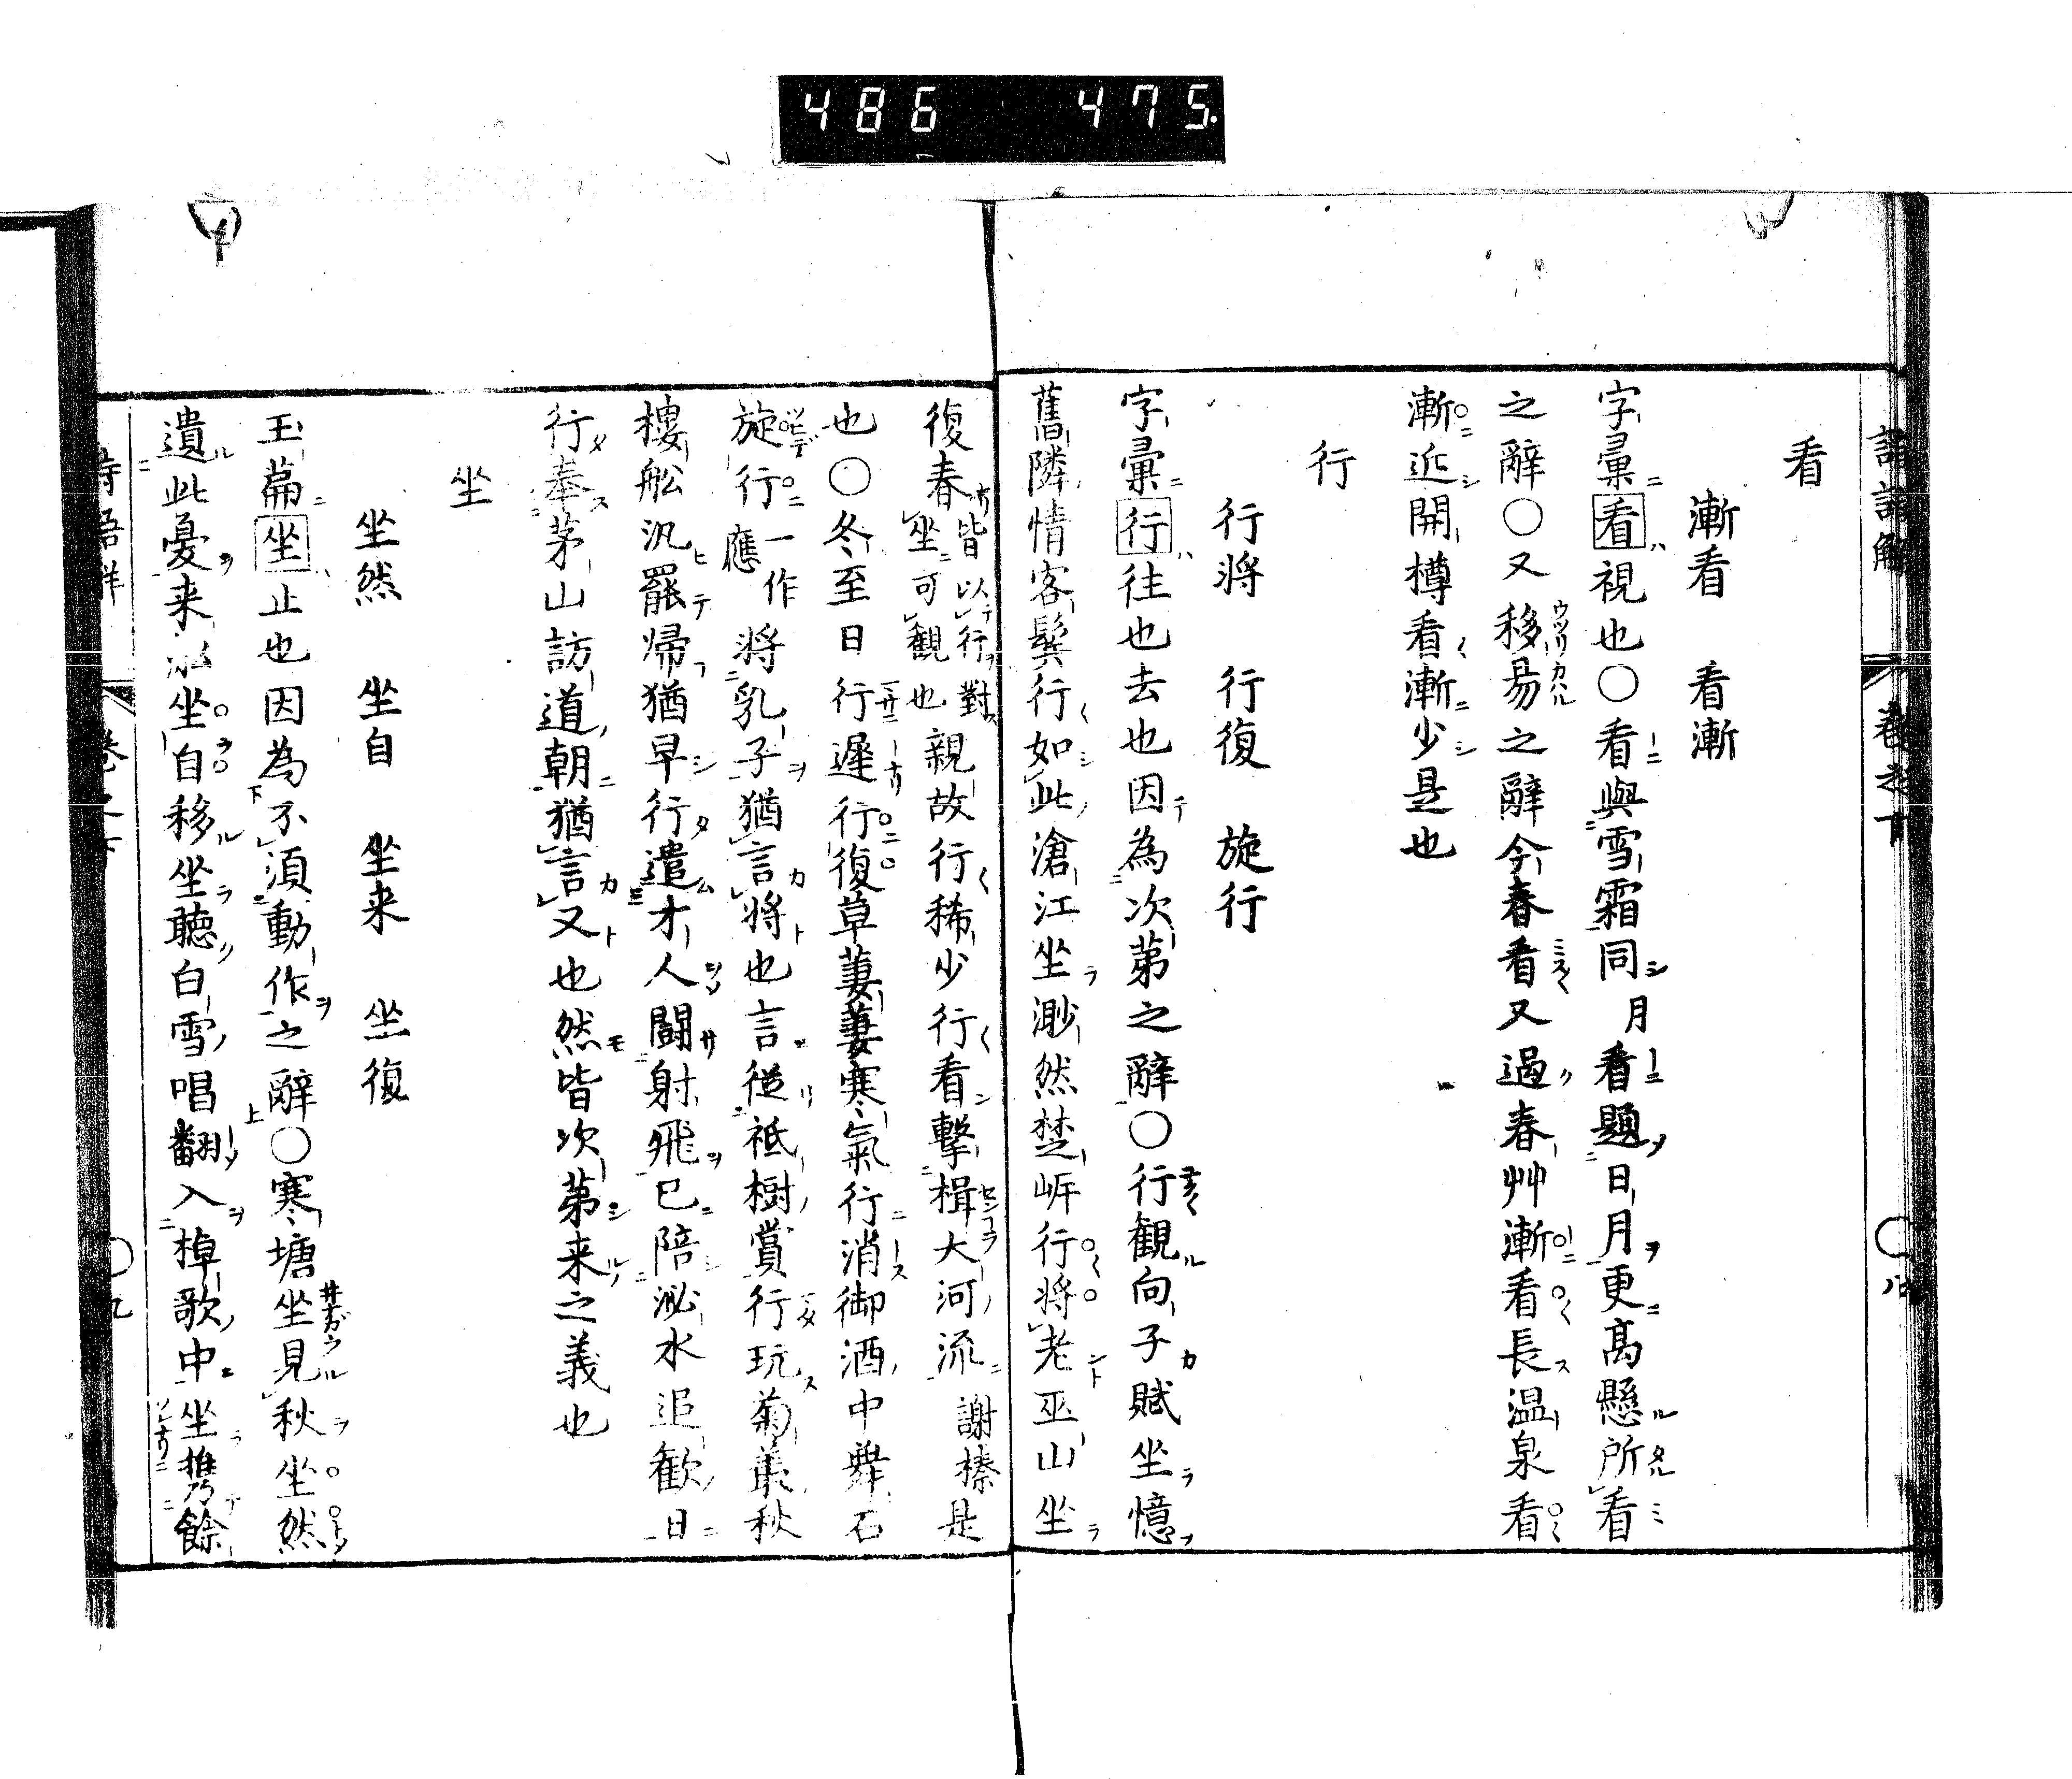 486 475.
看
漸看 看漸
字彙看視也〇看與雪霜同 月看題日月更高懸所看
之辭〇又移易之辭今春看又過春艸漸看長温泉看
漸近開樽看漸少是也
行
行將 行復 旋行
字彙行往也去也因為次第之辭〇行観向子賦坐憶
舊隣情客髩行如此滄江坐渺然楚岍行將老巫山坐
復春皆以行對坐可観也親故行稀少行看擊楫大河流 謝榛是
也〇冬至日行遲行復草萋萋寒氣行消御酒中舞石
旋行一作應將乳子猶言將也言從祗樹賞行玩菊叢秋
樓舩汎罷帰猶早行遣才人闘射飛已陪泌水追歓日
行奉茅山訪道朝猶言又也然皆次第来之義也
坐
坐然 坐自 坐来 坐復
玉篇坐止也因為不須動作之辭〇寒塘坐見秋坐然
遺此憂来坐自移坐聴白雪唱翻入棹歌中坐携餘